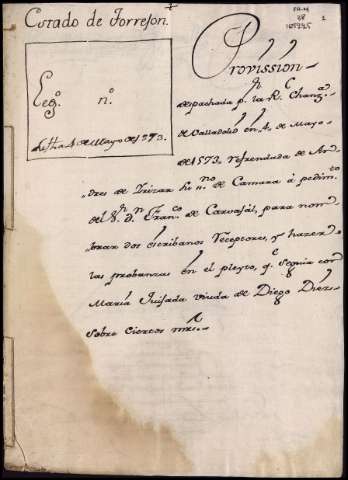 Estado de Torrejon.
Leg.º n.º
fecha 4 de Mayo de 1573.
Provission
despachada p.r la R.l Chanz.a
de Valladolid en 4. de Mayo
de 1573. refrendada de An-
dres de Irizar hi n.no de Camara á pedim.to
del S.r D.n Fran.co de Carvajál, para nom
brar dos escribanos Receptores, y hazer
las probanzas en el pleyto, q.e seguia con
Maria Quijada viuda de Diego Diez-
Sobre Ciertos mrs.-